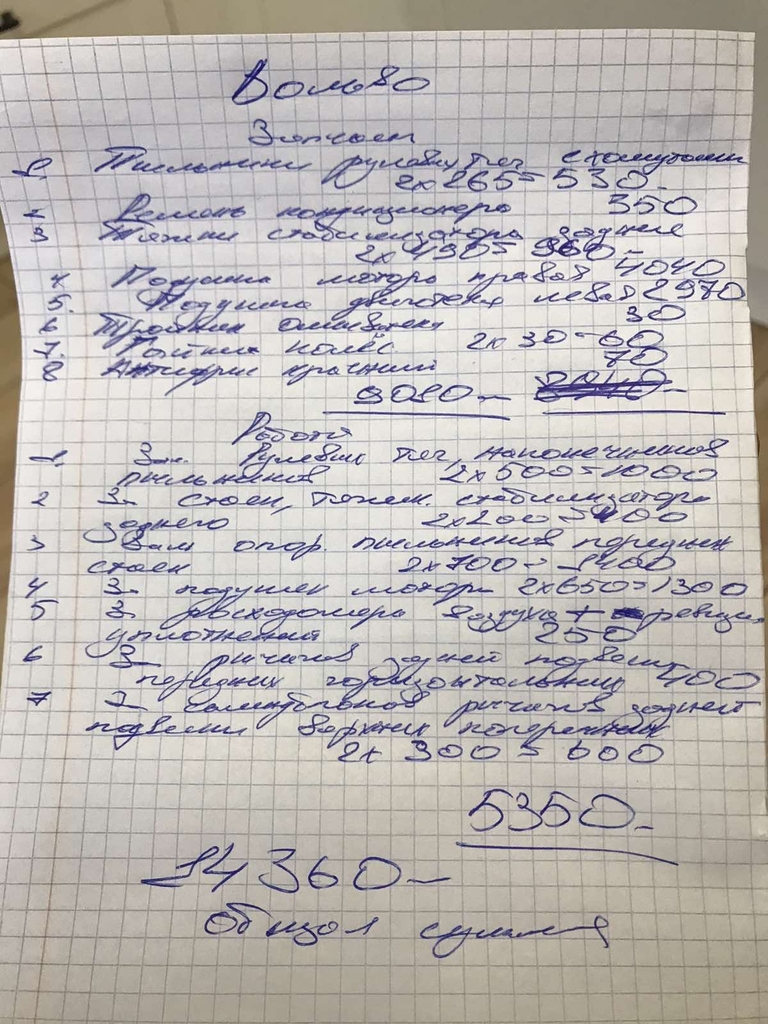 Вольво
Запчасти
1. Пыльники рулевых тяг с хомутами
2х265=530-
2 Ремень кондиционера 350
3 Тяжки стабилизатора задние
2х490= 960-
4 Подушка мотора правая 4040
5. Подушка двигателя левая 2970
6 Тройник омывателя 30
7. колёс 2х30-60
8 Антифриз красный 70
9010-
Работа
1. Зам. Рулевых тяг, наконечников
пыльников 2х500=1000
2 З- стоек, тяжек стабилизатора
заднего 2х200=400
3 Зам опор. пыльников передних
стоек 2х700=1400
4 З- подушек мотора 2х650=1300
5 З- расходомера воздуха +
уплотнений 250
6 З- рычагов задней подвески
горизонтальных 400
7 З- рычагов задней
подвески верхних поперечных
2х 300=600
5350-
14360-
Общая сумма